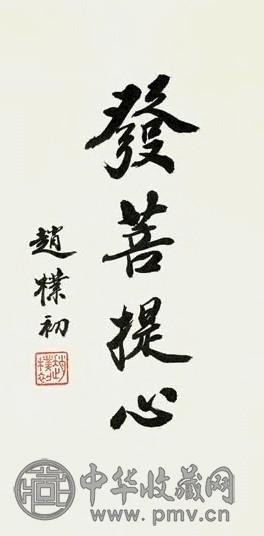 發菩提心
趙樸初
中华收藏网
www.pmv.cn